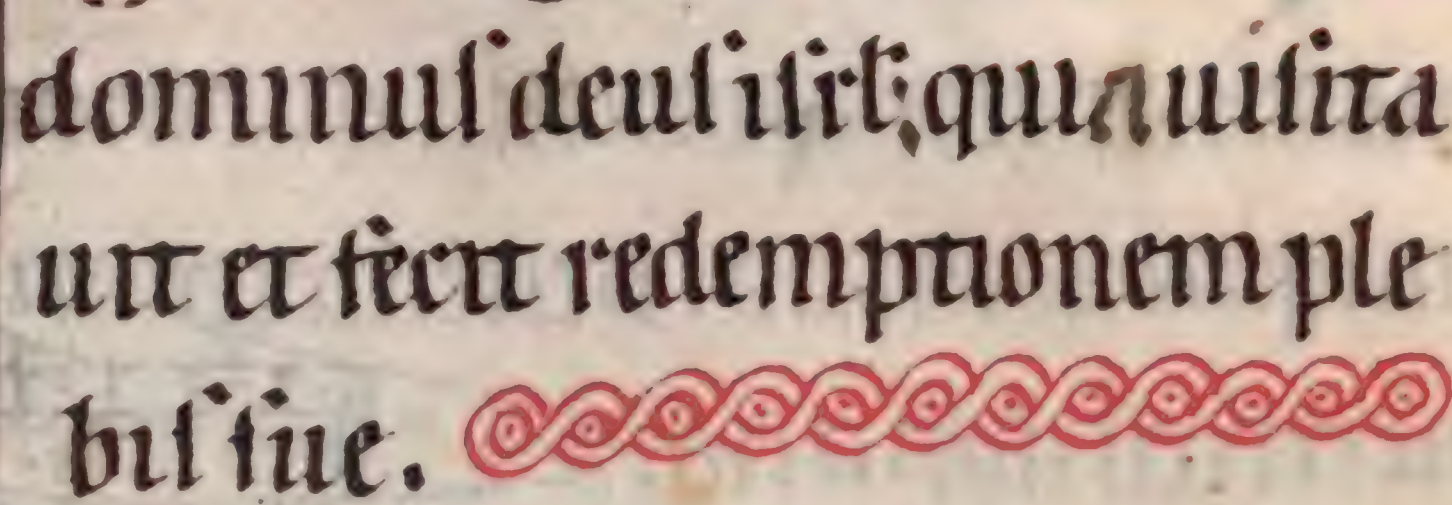 dominuſ deuſ iſrł; quia uiſita
uit et fecit redemptionem ple
biſ ſue.